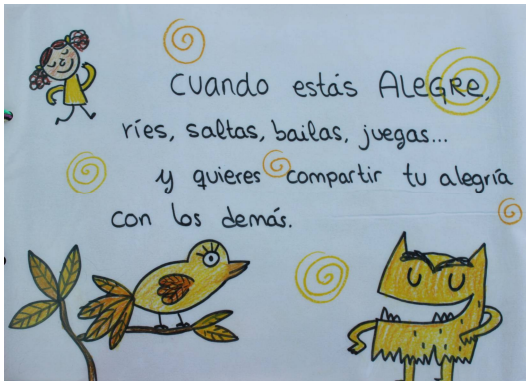 Cuando estás ALEGRE,
ríes, saltas, bailas, juegas...
y quieres compartir tu alegría
con los demás.